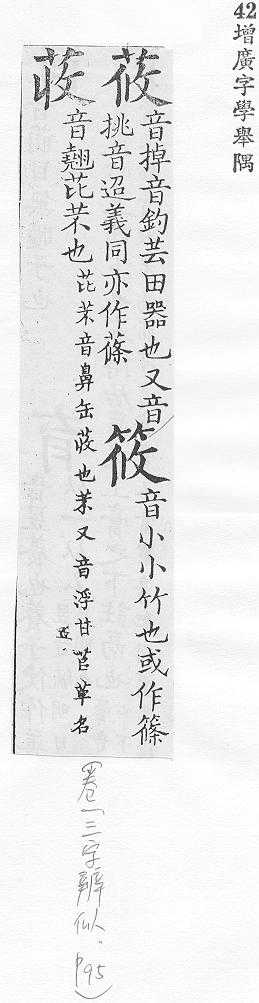 42增廣字學舉隅
莜 音掉音釣芸田器也又音
挑音迢義同亦作蓧 筱 音小小竹也或作篠
荍 音翹芘芣也 芘芣音鼻缶荍也芣又音浮甘苕草名
卷(三字辨似.P95)